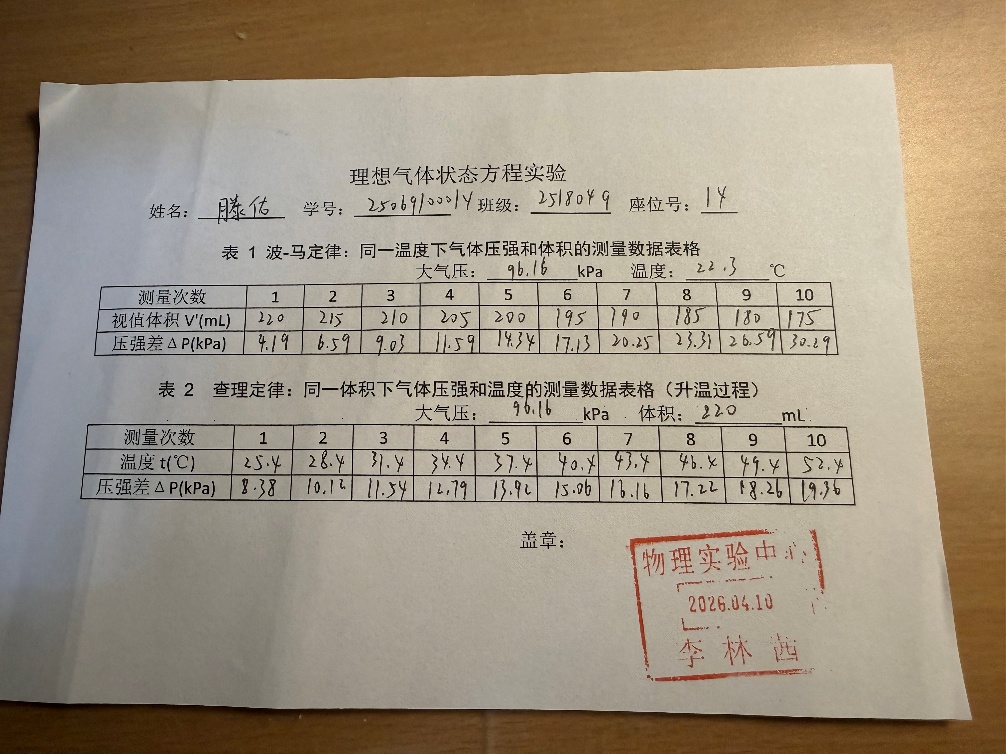 理想气体状态方程实验
姓名: 滕佑 学号: 25069100014 班级: 2518049 座位号: 14
表 1 波-马定律：同一温度下气体压强和体积的测量数据表格
大气压: 96.16 kPa 温度: 22.3 ℃
测量次数 1 2 3 4 5 6 7 8 9 10
视值体积 V'(mL) 220 215 210 205 200 195 190 185 180 175
压强差 Δ P(kPa) 4.19 6.59 9.03 11.59 14.34 17.13 20.25 23.31 26.59 30.29
表 2 查理定律：同一体积下气体压强和温度的测量数据表格（升温过程）
大气压: 96.16 kPa 体积: 220 mL
测量次数 1 2 3 4 5 6 7 8 9 10
温度 t(℃) 25.4 28.4 31.4 34.4 37.4 40.4 43.4 46.4 49.4 52.4
压强差 Δ P(kPa) 8.38 10.12 11.54 12.79 13.92 15.06 16.16 17.22 18.26 19.36
盖章：
物理实验中心
2026.04.10
李林茜